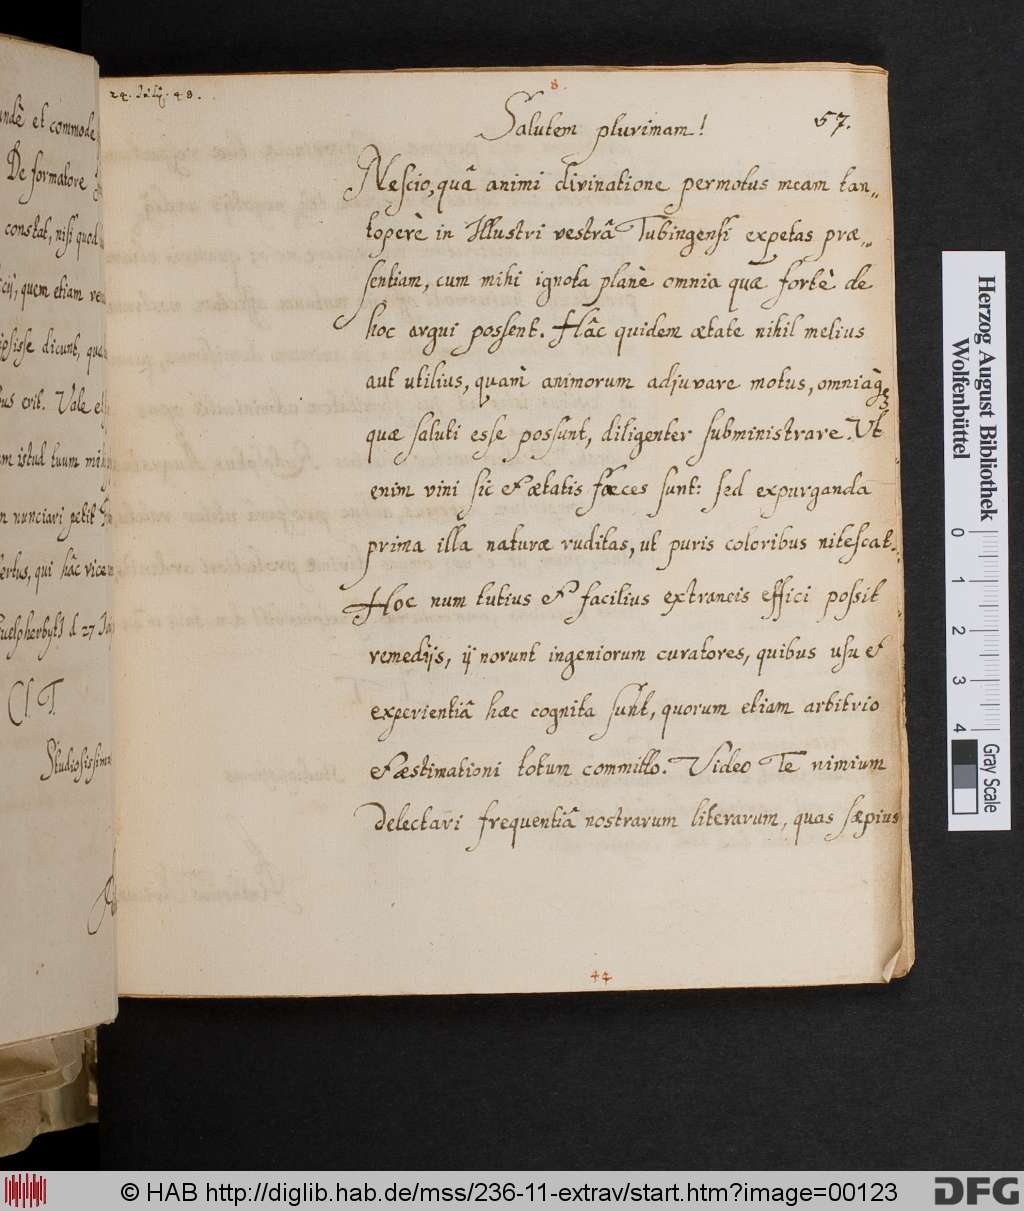 undè et commode
De formatore
constat, nisi quod
cij, quem etiam
ipsisse dicunt,
us erit. Vale et
m istud tuum
n nunciari petit
ertus, qui hâc vice
uelpherbyti d 27
Cl. T.
Studiosissim
24. Julij. 48.
8.
57.
Salutem plurimam!
Nescio, quâ animi divinatione permotus meam tan„
toperè in Illustri vestrâ Tubingensi expetas præ„
sentiam, cum mihi ignota planè omnia quæ fortè de
hoc argui possent. Hâc quidem ætate nihil melius
aut utilius, quàm animorum adjuvare motus, omniaq3
quæ saluti esse possunt, diligenter subministrare. Ut
enim vini sic & ætatis fæces sunt: sed expurganda
prima illa naturæ ruditas, ut puris coloribus nitescat.
Hoc num tutius & facilius extraneis effici possit
remedijs, ij norunt ingeniorum curatores, quibus usu &
experientiâ hæc cognita sunt, quorum etiam arbitrio
& æstimationi totum committo. Video Te nimium
delectari frequentiâ nostrarum literarum, quas sæpius
44
Herzog August Bibliothek
Wolfenbüttel
0 1 2 3 4
Gray Scale
© HAB http://diglib.hab.de/mss/236-11-extrav/start.htm?image=00123
DFG